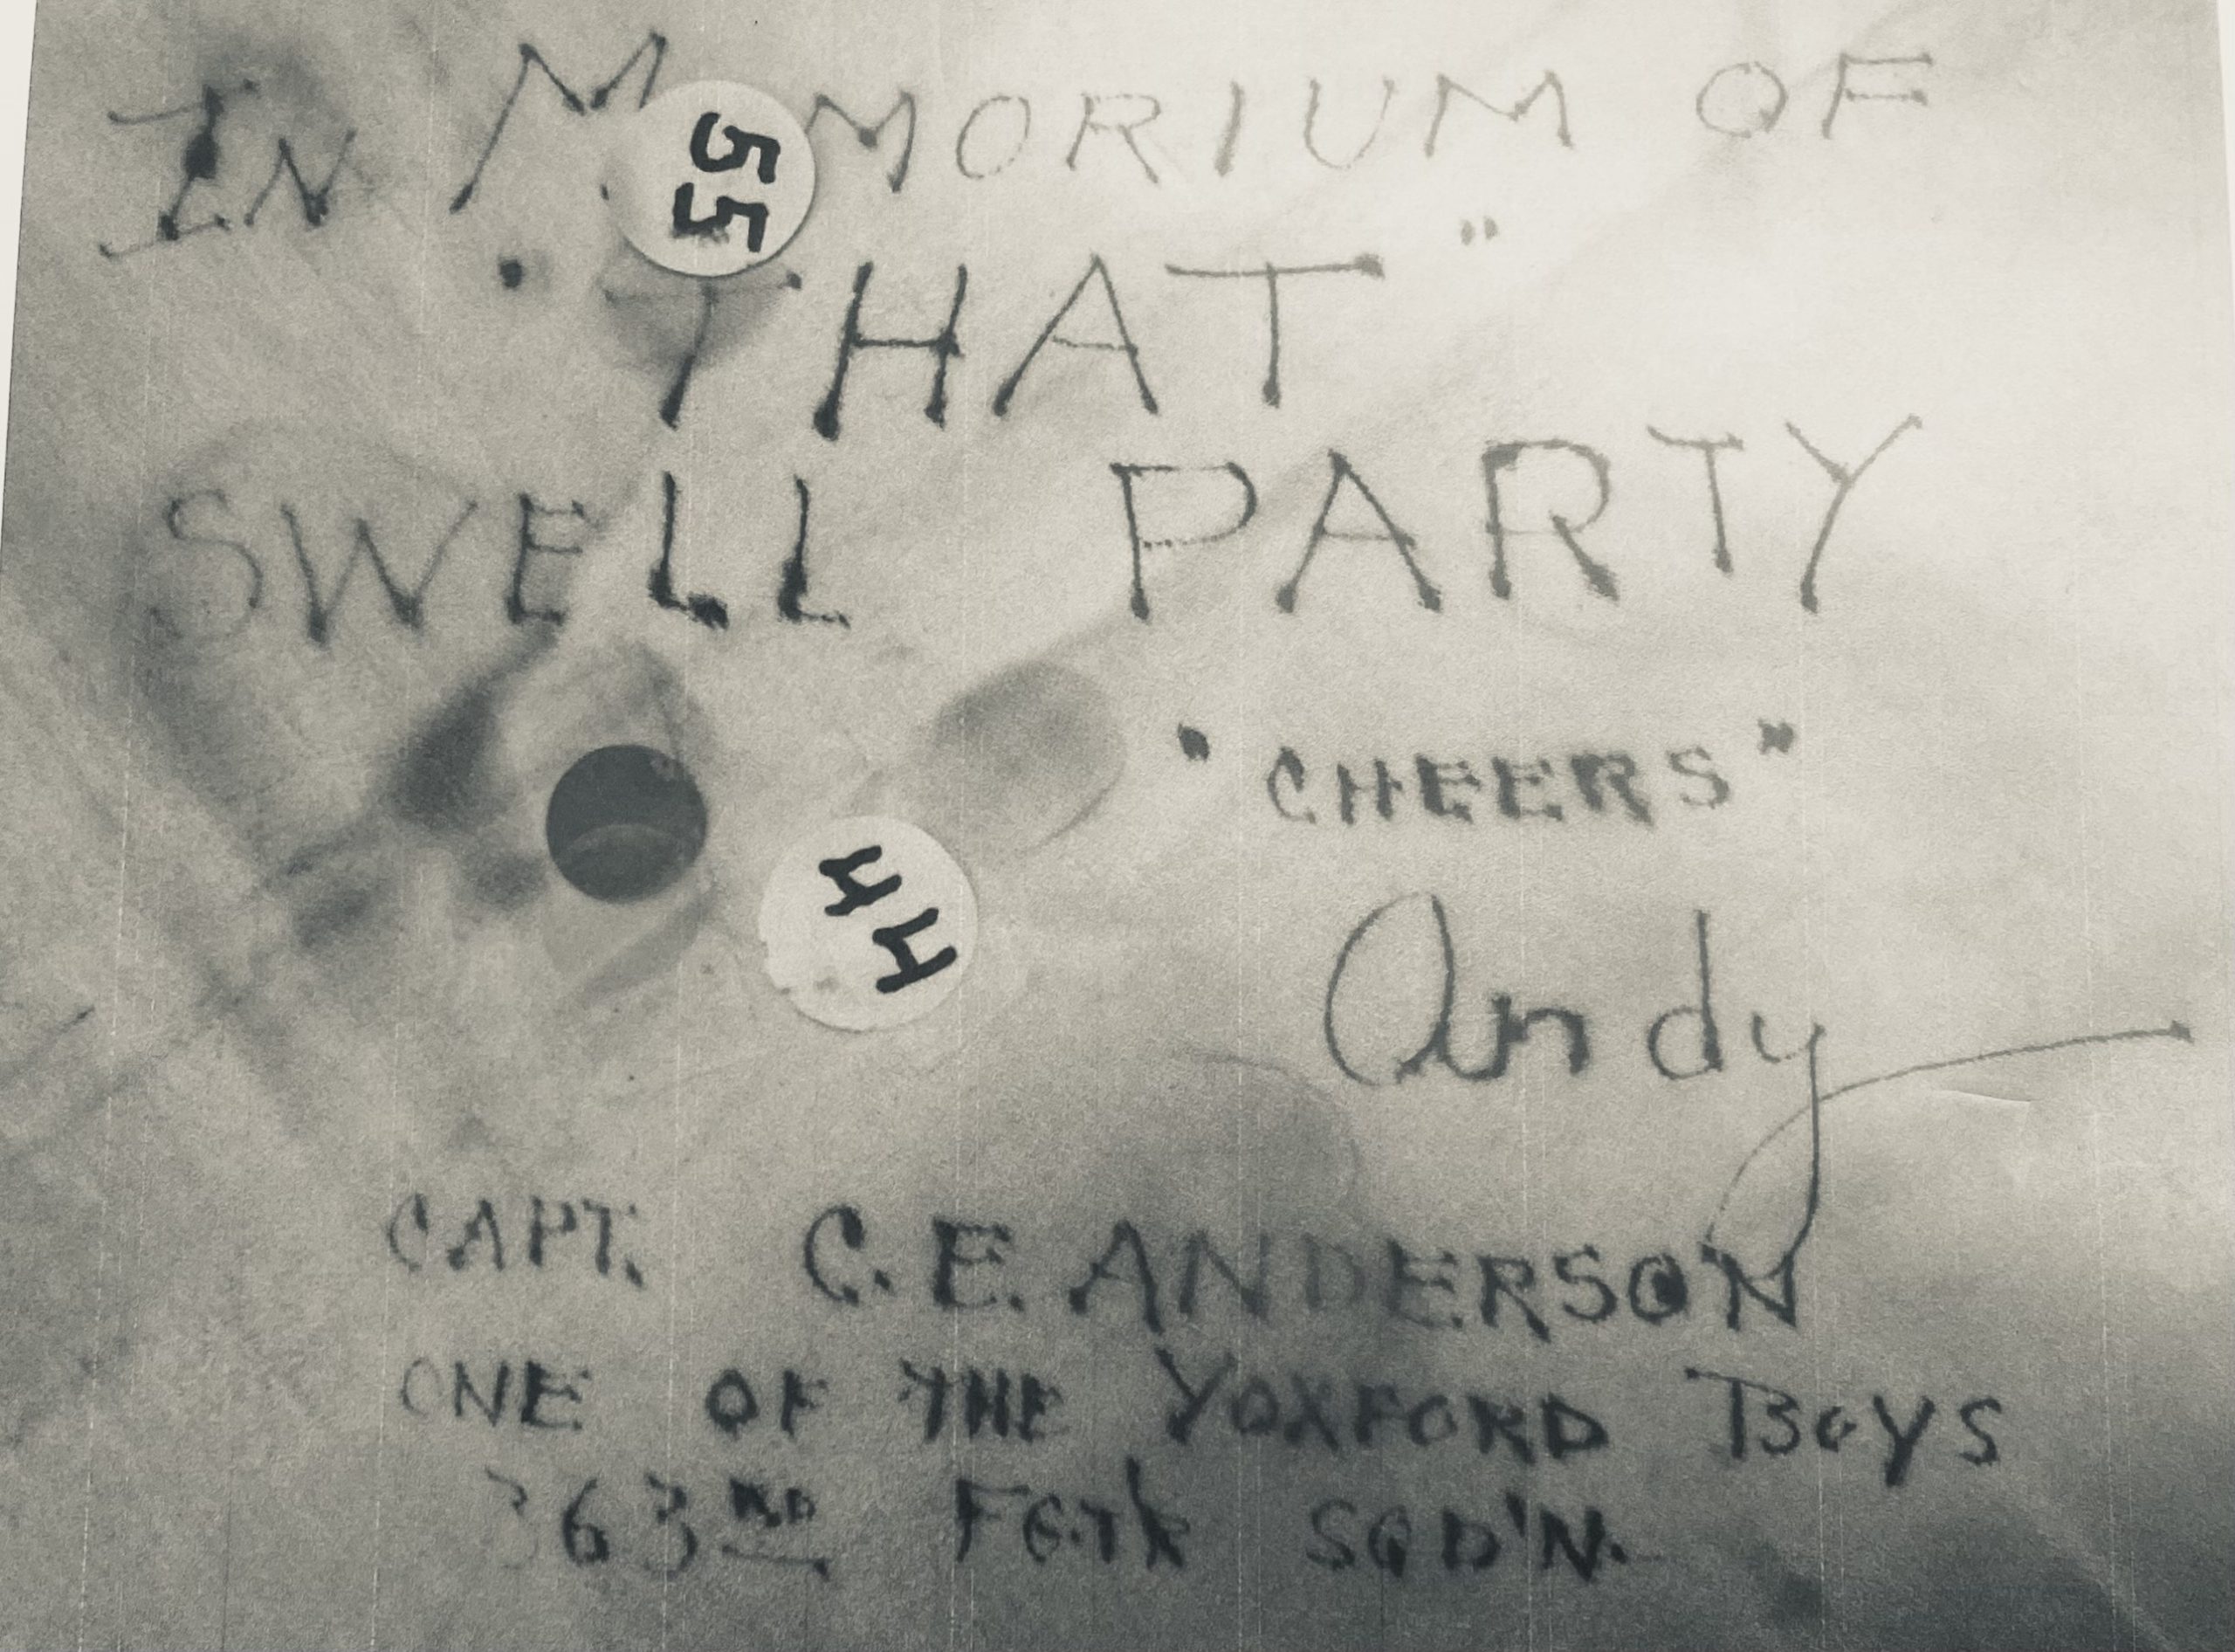 IN MEMORIUM OF
"THAT"
SWELL PARTY
"CHEERS"
Andy
CAPT. C.E. ANDERSON
ONE OF THE YOXFORD BOYS
363RD FGTR SQD'N.
55
44